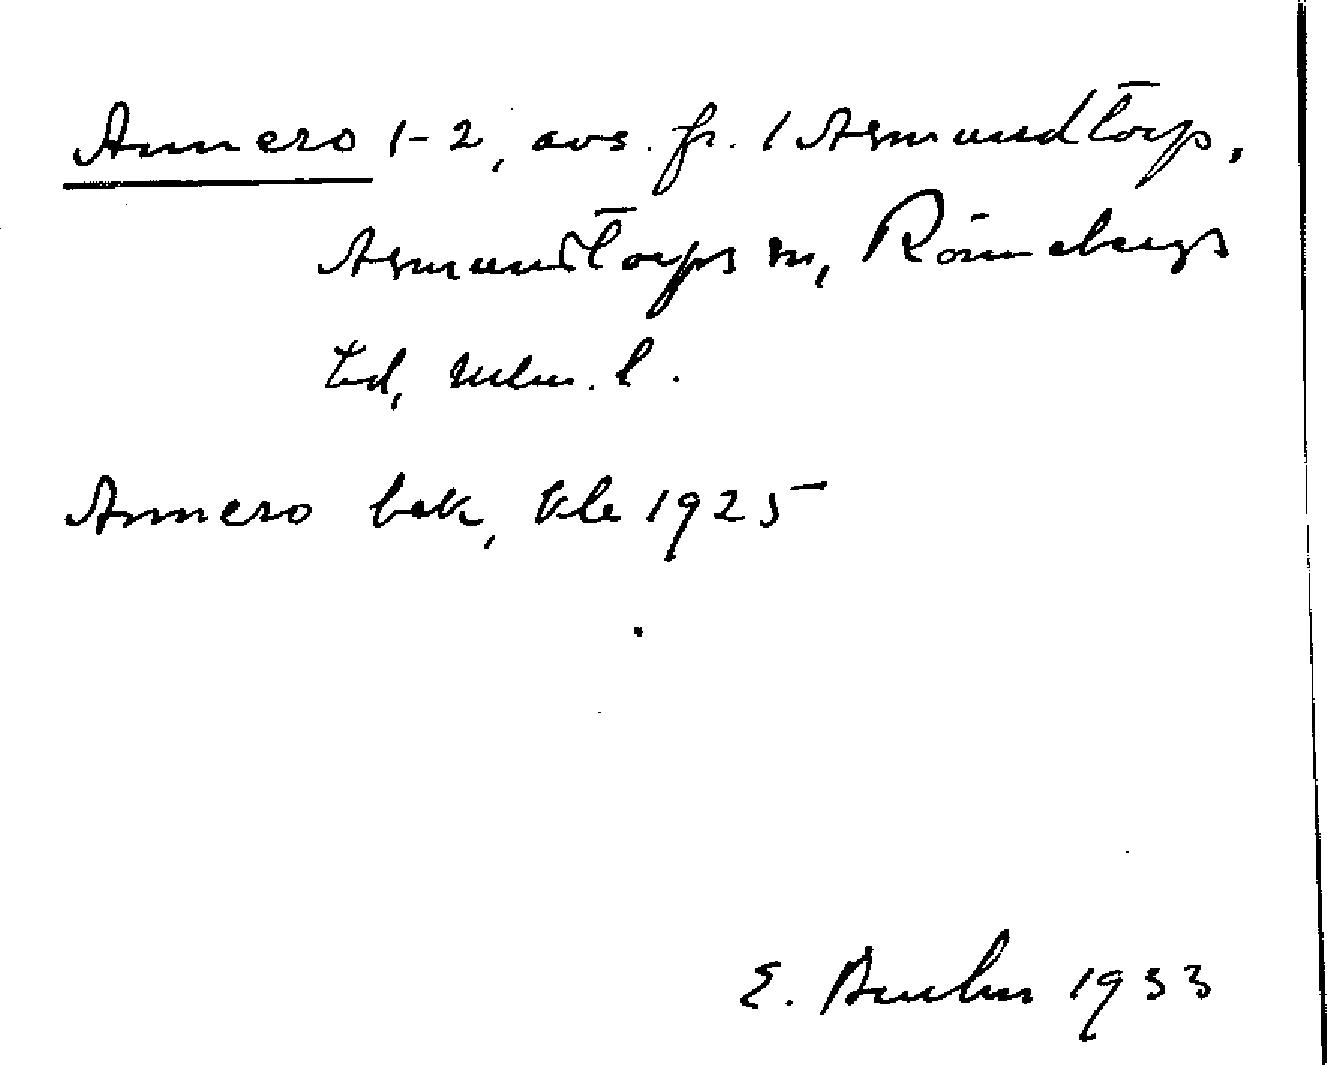 Annero 1-2, avs. fr. 1 Asmundtorp,
Asmundtorps sn, Rönnebergs
hd, Mlm. l.
Annero bek, kle 1925
E. 1933